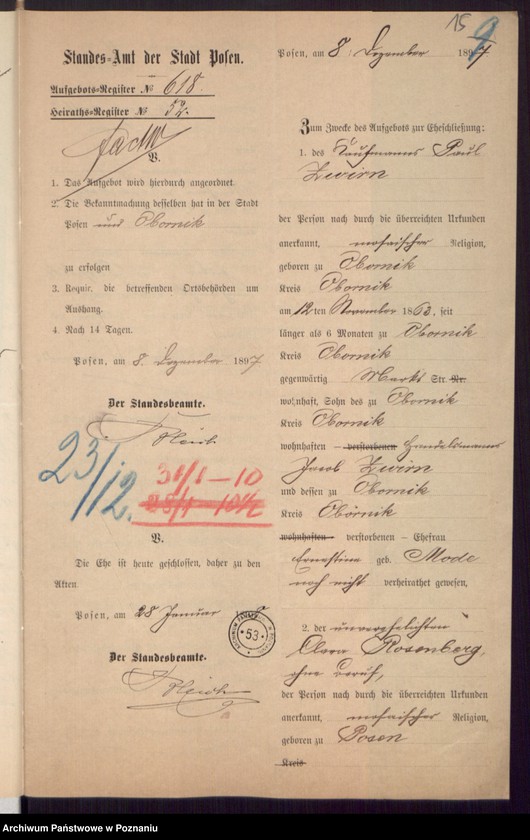 15
9
Standes-Amt der Stadt Posen.
Aufgebots-Register № 618.
Heiraths-Register № 52.
V.
1. Das Aufgebot wird hierdurch angeordnet.
2. Die Bekanntmachung desselben hat in der Stadt
Posen und Obornik
zu erfolgen
3. Requir. die betreffenden Ortsbehörden um
Aushang.
4. Nach 14 Tagen.
Posen, am 8. Dezember 1897
Der Standesbeamte.
23/12.
31/1 – 10
V.
Die Ehe ist heute geschlossen, daher zu den
Akten.
Posen, am 28 Januar
Der Standesbeamte.
Posen, am 8. Dezember 1897.
Zum Zwecke des Aufgebots zur Eheschließung:
1. des Kaufmanns Paul
Zwirn
der Person nach durch die überreichten Urkunden
anerkannt, mosaischer Religion,
geboren zu Obornik
Kreis Obornik
am 12ten November 1863, seit
länger als 6 Monaten zu Obornik
Kreis Obornik
gegenwärtig Markt Str. Nr.
wohnhaft, Sohn des zu Obornik
Kreis Obornik
wohnhaften – verstorbenen Handelsmanns
Jacob Zwirn
und dessen zu Obornik
Kreis Obornik
wohnhaften – verstorbenen – Ehefrau
Ernestine geb. Mode
noch nicht verheirathet gewesen,
53
2. der unverehelichten
Clara Rosenberg,
ohne Beruf,
der Person nach durch die überreichten Urkunden
anerkannt, mosaischer Religion,
geboren zu Posen
Kreis
Archiwum Państwowe w Poznaniu